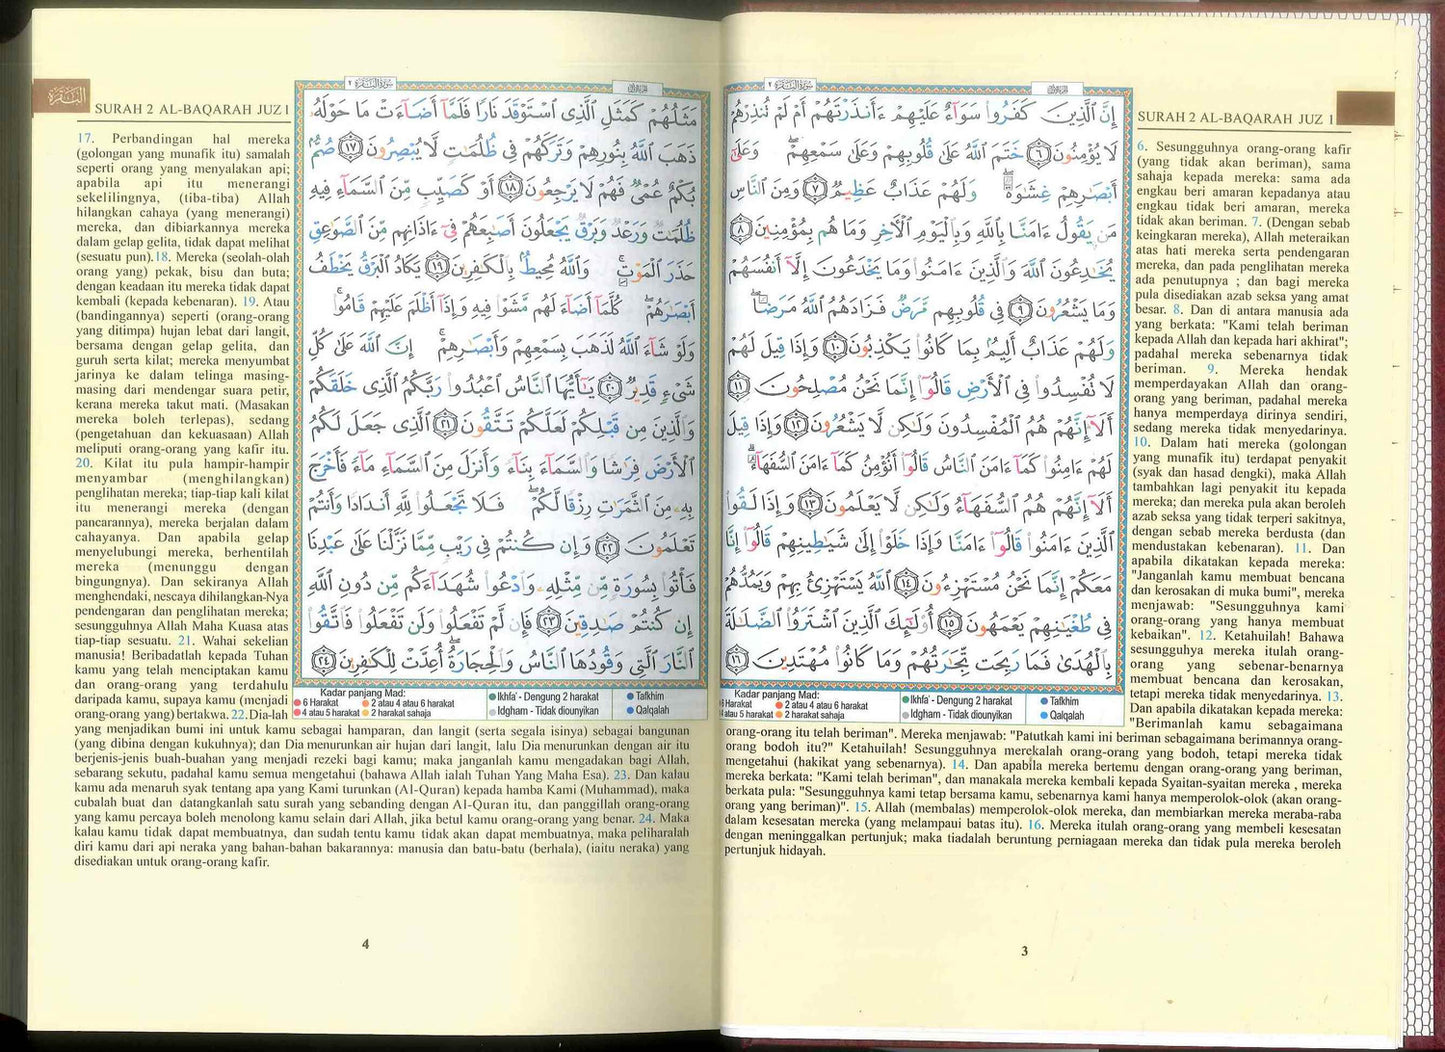 سورة البقرة ٢
SURAH 2 AL-BAQARAH JUZ 1
إِنَّ ٱلَّذِينَ كَفَرُوا۟ سَوَآءٌ عَلَيْهِمْ ءَأَنذَرْتَهُمْ أَمْ لَمْ تُنذِرْهُمْ
لَا يُؤْمِنُونَ ٦ خَتَمَ ٱللَّهُ عَلَىٰ قُلُوبِهِمْ وَعَلَىٰ سَمْعِهِمْ ۖ وَعَلَىٰٓ
أَبْصَـٰرِهِمْ غِشَـٰوَةٌ ۖ وَلَهُمْ عَذَابٌ عَظِيمٌ ٧ وَمِنَ ٱلنَّاسِ
مَن يَقُولُ ءَامَنَّا بِٱللَّهِ وَبِٱلْيَوْمِ ٱلْـَٔاخِرِ وَمَا هُم بِمُؤْمِنِينَ ٨
يُخَـٰدِعُونَ ٱللَّهَ وَٱلَّذِينَ ءَامَنُوا۟ وَمَا يَخْدَعُونَ إِلَّآ أَنفُسَهُمْ
وَمَا يَشْعُرُونَ ٩ فِى قُلُوبِهِم مَّرَضٌ فَزَادَهُمُ ٱللَّهُ مَرَضًا ۖ
وَلَهُمْ عَذَابٌ أَلِيمٌۢ بِمَا كَانُوا۟ يَكْذِبُونَ ١٠ وَإِذَا قِيلَ لَهُمْ
لَا تُفْسِدُوا۟ فِى ٱلْأَرْضِ قَالُوٓا۟ إِنَّمَا نَحْنُ مُصْلِحُونَ ١١
أَلَآ إِنَّهُمْ هُمُ ٱلْمُفْسِدُونَ وَلَـٰكِن لَّا يَشْعُرُونَ ١٢ وَإِذَا قِيلَ
لَهُمْ ءَامِنُوا۟ كَمَآ ءَامَنَ ٱلنَّاسُ قَالُوٓا۟ أَنُؤْمِنُ كَمَآ ءَامَنَ ٱلسُّفَهَآءُ ۗ
أَلَآ إِنَّهُمْ هُمُ ٱلسُّفَهَآءُ وَلَـٰكِن لَّا يَعْلَمُونَ ١٣ وَإِذَا لَقُوا۟
ٱلَّذِينَ ءَامَنُوا۟ قَالُوٓا۟ ءَامَنَّا وَإِذَا خَلَوْا۟ إِلَىٰ شَيَـٰطِينِهِمْ قَالُوٓا۟ إِنَّا
مَعَكُمْ إِنَّمَا نَحْنُ مُسْتَهْزِءُونَ ١٤ ٱللَّهُ يَسْتَهْزِئُ بِهِمْ وَيَمُدُّهُمْ
فِى طُغْيَـٰنِهِمْ يَعْمَهُونَ ١٥ أُو۟لَـٰٓئِكَ ٱلَّذِينَ ٱشْتَرَوُا۟ ٱلضَّلَـٰلَةَ
بِٱلْهُدَىٰ فَمَا رَبِحَت تِّجَـٰرَتُهُمْ وَمَا كَانُوا۟ مُهْتَدِينَ ١٦
Kadar panjang Mad:
6 Harakat 2 atau 4 atau 6 harakat
4 atau 5 harakat 2 harakat sahaja
Ikhfa' - Dengung 2 harakat
Idgham - Tidak diounyikan
Tafkhim
Qalqalah
6. Sesungguhnya orang-orang kafir
(yang tidak akan beriman), sama
sahaja kepada mereka: sama ada
engkau beri amaran kepadanya atau
engkau tidak beri amaran, mereka
tidak akan beriman. 7. (Dengan sebab
keingkaran mereka), Allah meteraikan
atas hati mereka serta pendengaran
mereka, dan pada penglihatan mereka
ada penutupnya ; dan bagi mereka
pula disediakan azab seksa yang amat
besar. 8. Dan di antara manusia ada
yang berkata: "Kami telah beriman
kepada Allah dan kepada hari akhirat";
padahal mereka sebenarnya tidak
beriman. 9. Mereka hendak
memperdayakan Allah dan orang-
orang yang beriman, padahal mereka
hanya memperdaya dirinya sendiri,
sedang mereka tidak menyedarinya.
10. Dalam hati mereka (golongan
yang munafik itu) terdapat penyakit
(syak dan hasad dengki), maka Allah
tambahkan lagi penyakit itu kepada
mereka; dan mereka pula akan beroleh
azab seksa yang tidak terperi sakitnya,
dengan sebab mereka berdusta (dan
mendustakan kebenaran). 11. Dan
apabila dikatakan kepada mereka:
"Janganlah kamu membuat bencana
dan kerosakan di muka bumi", mereka
menjawab: "Sesungguhnya kami
orang-orang yang hanya membuat
kebaikan". 12. Ketahuilah! Bahawa
sesungguhya mereka itulah orang-
orang yang sebenar-benarnya
membuat bencana dan kerosakan,
tetapi mereka tidak menyedarinya. 13.
Dan apabila dikatakan kepada mereka:
"Berimanlah kamu sebagaimana
orang-orang itu telah beriman". Mereka menjawab: "Patutkah kami ini beriman sebagaimana berimannya orang-
orang bodoh itu?" Ketahuilah! Sesungguhnya merekalah orang-orang yang bodoh, tetapi mereka tidak
mengetahui (hakikat yang sebenarnya). 14. Dan apabila mereka bertemu dengan orang-orang yang beriman,
mereka berkata: "Kami telah beriman", dan manakala mereka kembali kepada Syaitan-syaitan mereka , mereka
berkata pula: "Sesungguhnya kami tetap bersama kamu, sebenarnya kami hanya memperolok-olok (akan orang-
orang yang beriman)". 15. Allah (membalas) memperolok-olok mereka, dan membiarkan mereka meraba-raba
dalam kesesatan mereka (yang melampaui batas itu). 16. Mereka itulah orang-orang yang membeli kesesatan
dengan meninggalkan pertunjuk; maka tiadalah beruntung perniagaan mereka dan tidak pula mereka beroleh
pertunjuk hidayah.
3
البقرة
SURAH 2 AL-BAQARAH JUZ 1
سورة البقرة ٢
مَثَلُهُمْ كَمَثَلِ ٱلَّذِى ٱسْتَوْقَدَ نَارًا فَلَمَّآ أَضَآءَتْ مَا حَوْلَهُۥ
ذَهَبَ ٱللَّهُ بِنُورِهِمْ وَتَرَكَهُمْ فِى ظُلُمَـٰتٍ لَّا يُبْصِرُونَ ١٧ صُمٌّۢ
بُكْمٌ عُمْىٌ فَهُمْ لَا يَرْجِعُونَ ١٨ أَوْ كَصَيِّبٍ مِّنَ ٱلسَّمَآءِ فِيهِ
ظُلُمَـٰتٌ وَرَعْدٌ وَبَرْقٌ يَجْعَلُونَ أَصَـٰبِعَهُمْ فِىٓ ءَاذَانِهِم مِّنَ ٱلصَّوَٰعِقِ
حَذَرَ ٱلْمَوْتِ ۚ وَٱللَّهُ مُحِيطٌۢ بِٱلْكَـٰفِرِينَ ١٩ يَكَادُ ٱلْبَرْقُ يَخْطَفُ
أَبْصَـٰرَهُمْ ۖ كُلَّمَآ أَضَآءَ لَهُم مَّشَوْا۟ فِيهِ وَإِذَآ أَظْلَمَ عَلَيْهِمْ قَامُوا۟ ۚ
وَلَوْ شَآءَ ٱللَّهُ لَذَهَبَ بِسَمْعِهِمْ وَأَبْصَـٰرِهِمْ ۚ إِنَّ ٱللَّهَ عَلَىٰ كُلِّ
شَىْءٍ قَدِيرٌ ٢٠ يَـٰٓأَيُّهَا ٱلنَّاسُ ٱعْبُدُوا۟ رَبَّكُمُ ٱلَّذِى خَلَقَكُمْ
وَٱلَّذِينَ مِن قَبْلِكُمْ لَعَلَّكُمْ تَتَّقُونَ ٢١ ٱلَّذِى جَعَلَ لَكُمُ
ٱلْأَرْضَ فِرَٰشًا وَٱلسَّمَآءَ بِنَآءً وَأَنزَلَ مِنَ ٱلسَّمَآءِ مَآءً فَأَخْرَجَ
بِهِۦ مِنَ ٱلثَّمَرَٰتِ رِزْقًا لَّكُمْ ۖ فَلَا تَجْعَلُوا۟ لِلَّهِ أَندَادًا وَأَنتُمْ
تَعْلَمُونَ ٢٢ وَإِن كُنتُمْ فِى رَيْبٍ مِّمَّا نَزَّلْنَا عَلَىٰ عَبْدِنَا
فَأْتُوا۟ بِسُورَةٍ مِّن مِّثْلِهِۦ وَٱدْعُوا۟ شُهَدَآءَكُم مِّن دُونِ ٱللَّهِ
إِن كُنتُمْ صَـٰدِقِينَ ٢٣ فَإِن لَّمْ تَفْعَلُوا۟ وَلَن تَفْعَلُوا۟ فَٱتَّقُوا۟
ٱلنَّارَ ٱلَّتِى وَقُودُهَا ٱلنَّاسُ وَٱلْحِجَارَةُ ۖ أُعِدَّتْ لِلْكَـٰفِرِينَ ٢٤
Kadar panjang Mad:
6 Harakat 2 atau 4 atau 6 harakat
4 atau 5 harakat 2 harakat sahaja
Ikhfa' - Dengung 2 harakat
Idgham - Tidak diounyikan
Tafkhim
Qalqalah
17. Perbandingan hal mereka
(golongan yang munafik itu) samalah
seperti orang yang menyalakan api;
apabila api itu menerangi
sekelilingnya, (tiba-tiba) Allah
hilangkan cahaya (yang menerangi)
mereka, dan dibiarkannya mereka
dalam gelap gelita, tidak dapat melihat
(sesuatu pun).18. Mereka (seolah-olah
orang yang) pekak, bisu dan buta;
dengan keadaan itu mereka tidak dapat
kembali (kepada kebenaran). 19. Atau
(bandingannya) seperti (orang-orang
yang ditimpa) hujan lebat dari langit,
bersama dengan gelap gelita, dan
guruh serta kilat; mereka menyumbat
jarinya ke dalam telinga masing-
masing dari mendengar suara petir,
kerana mereka takut mati. (Masakan
mereka boleh terlepas), sedang
(pengetahuan dan kekuasaan) Allah
meliputi orang-orang yang kafir itu.
20. Kilat itu pula hampir-hampir
menyambar (menghilangkan)
penglihatan mereka; tiap-tiap kali kilat
itu menerangi mereka (dengan
pancarannya), mereka berjalan dalam
cahayanya. Dan apabila gelap
menyelubungi mereka, berhentilah
mereka (menunggu dengan
bingungnya). Dan sekiranya Allah
menghendaki, nescaya dihilangkan-Nya
pendengaran dan penglihatan mereka;
sesungguhnya Allah Maha Kuasa atas
tiap-tiap sesuatu. 21. Wahai sekelian
manusia! Beribadatlah kepada Tuhan
kamu yang telah menciptakan kamu
dan orang-orang yang terdahulu
daripada kamu, supaya kamu (menjadi
orang-orang yang) bertakwa. 22.Dia-lah
yang menjadikan bumi ini untuk kamu sebagai hamparan, dan langit (serta segala isinya) sebagai bangunan
(yang dibina dengan kukuhnya); dan Dia menurunkan air hujan dari langit, lalu Dia menurunkan dengan air itu
berjenis-jenis buah-buahan yang menjadi rezeki bagi kamu; maka janganlah kamu mengadakan bagi Allah,
sebarang sekutu, padahal kamu semua mengetahui (bahawa Allah ialah Tuhan Yang Maha Esa). 23. Dan kalau
kamu ada menaruh syak tentang apa yang Kami turunkan (Al-Quran) kepada hamba Kami (Muhammad), maka
cubalah buat dan datangkanlah satu surah yang sebanding dengan Al-Quran itu, dan panggillah orang-orang
yang kamu percaya boleh menolong kamu selain dari Allah, jika betul kamu orang-orang yang benar. 24. Maka
kalau kamu tidak dapat membuatnya, dan sudah tentu kamu tidak akan dapat membuatnya, maka peliharalah
diri kamu dari api neraka yang bahan-bahan bakarannya: manusia dan batu-batu (berhala), (iaitu neraka) yang
disediakan untuk orang-orang kafir.
4